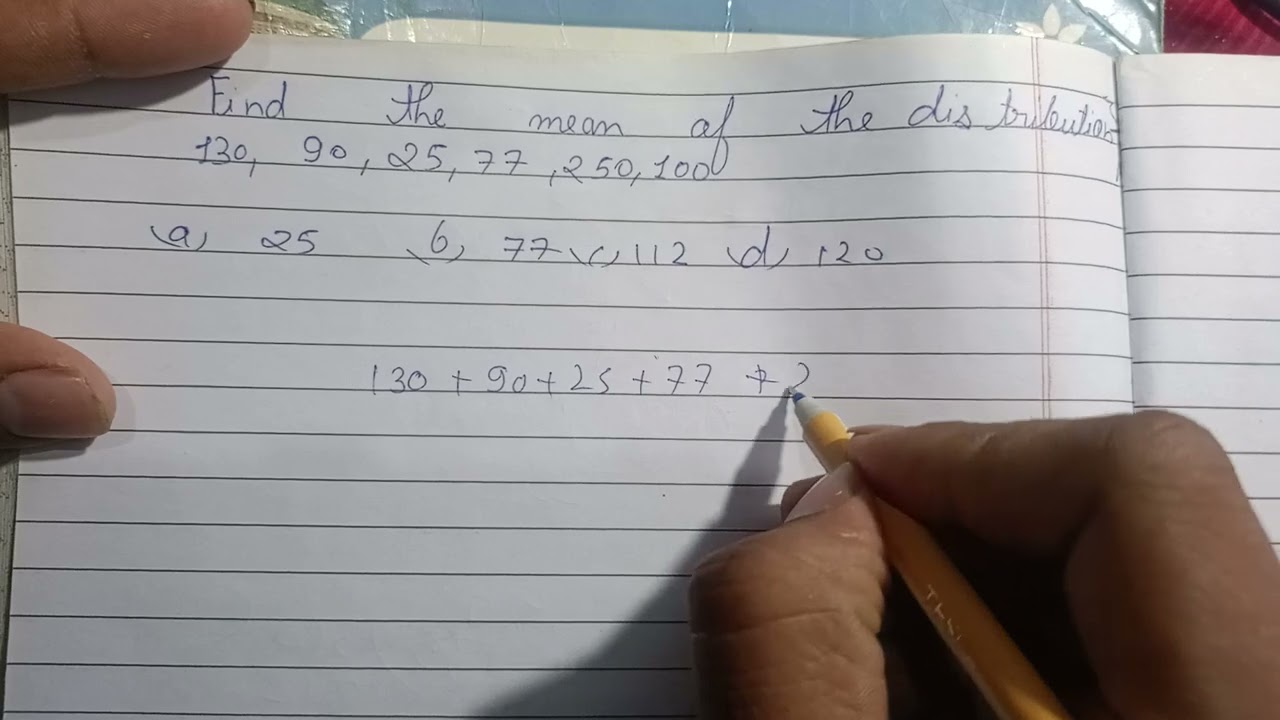 Find the mean of the distribution
130, 90, 25, 77, 250, 100
(a) 25 (b) 77 (c) 112 (d) 120
130 + 90 + 25 + 77 + 2